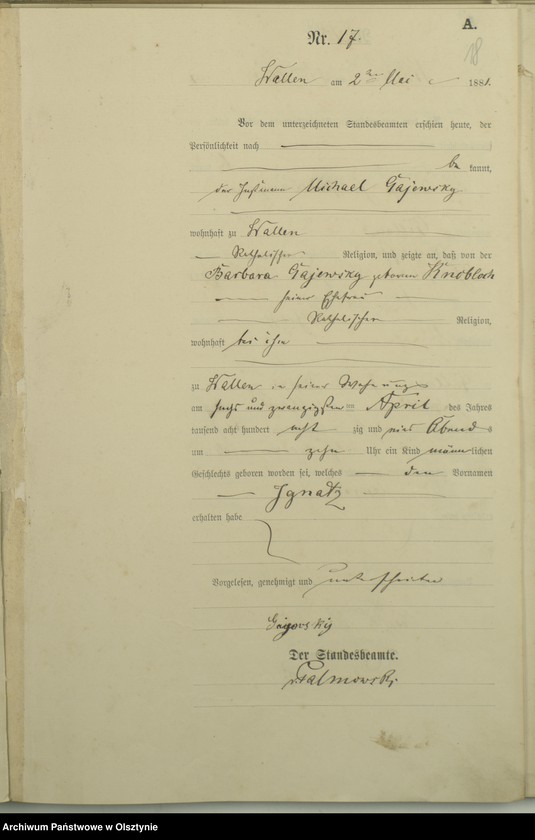 A.
Nr. 17.
18
Wallen am 2ten Mai 1881.
Vor dem unterzeichneten Standesbeamten erschien heute, der
Persönlichkeit nach
be kannt,
der Michael Gajewsky
wohnhaft zu Wallen
Katholischer Religion, und zeigte an, daß von der
Barbara Gajewsky geboren Knobloch
seiner Ehefrau
Katholischer Religion,
wohnhaft bei ihm
zu Wallen in seiner Wohnung
am sechs und zwanzigsten April des Jahres
tausend acht hundert acht zig und eins Abends
um zehn Uhr ein Kind männlichen
Geschlechts geboren worden sei, welches den Vornamen
Ignatz
erhalten habe
Vorgelesen, genehmigt und unterschrieben
Gajorskÿ
Der Standesbeamte.
Palmowski
Archiwum Państwowe w Olsztynie